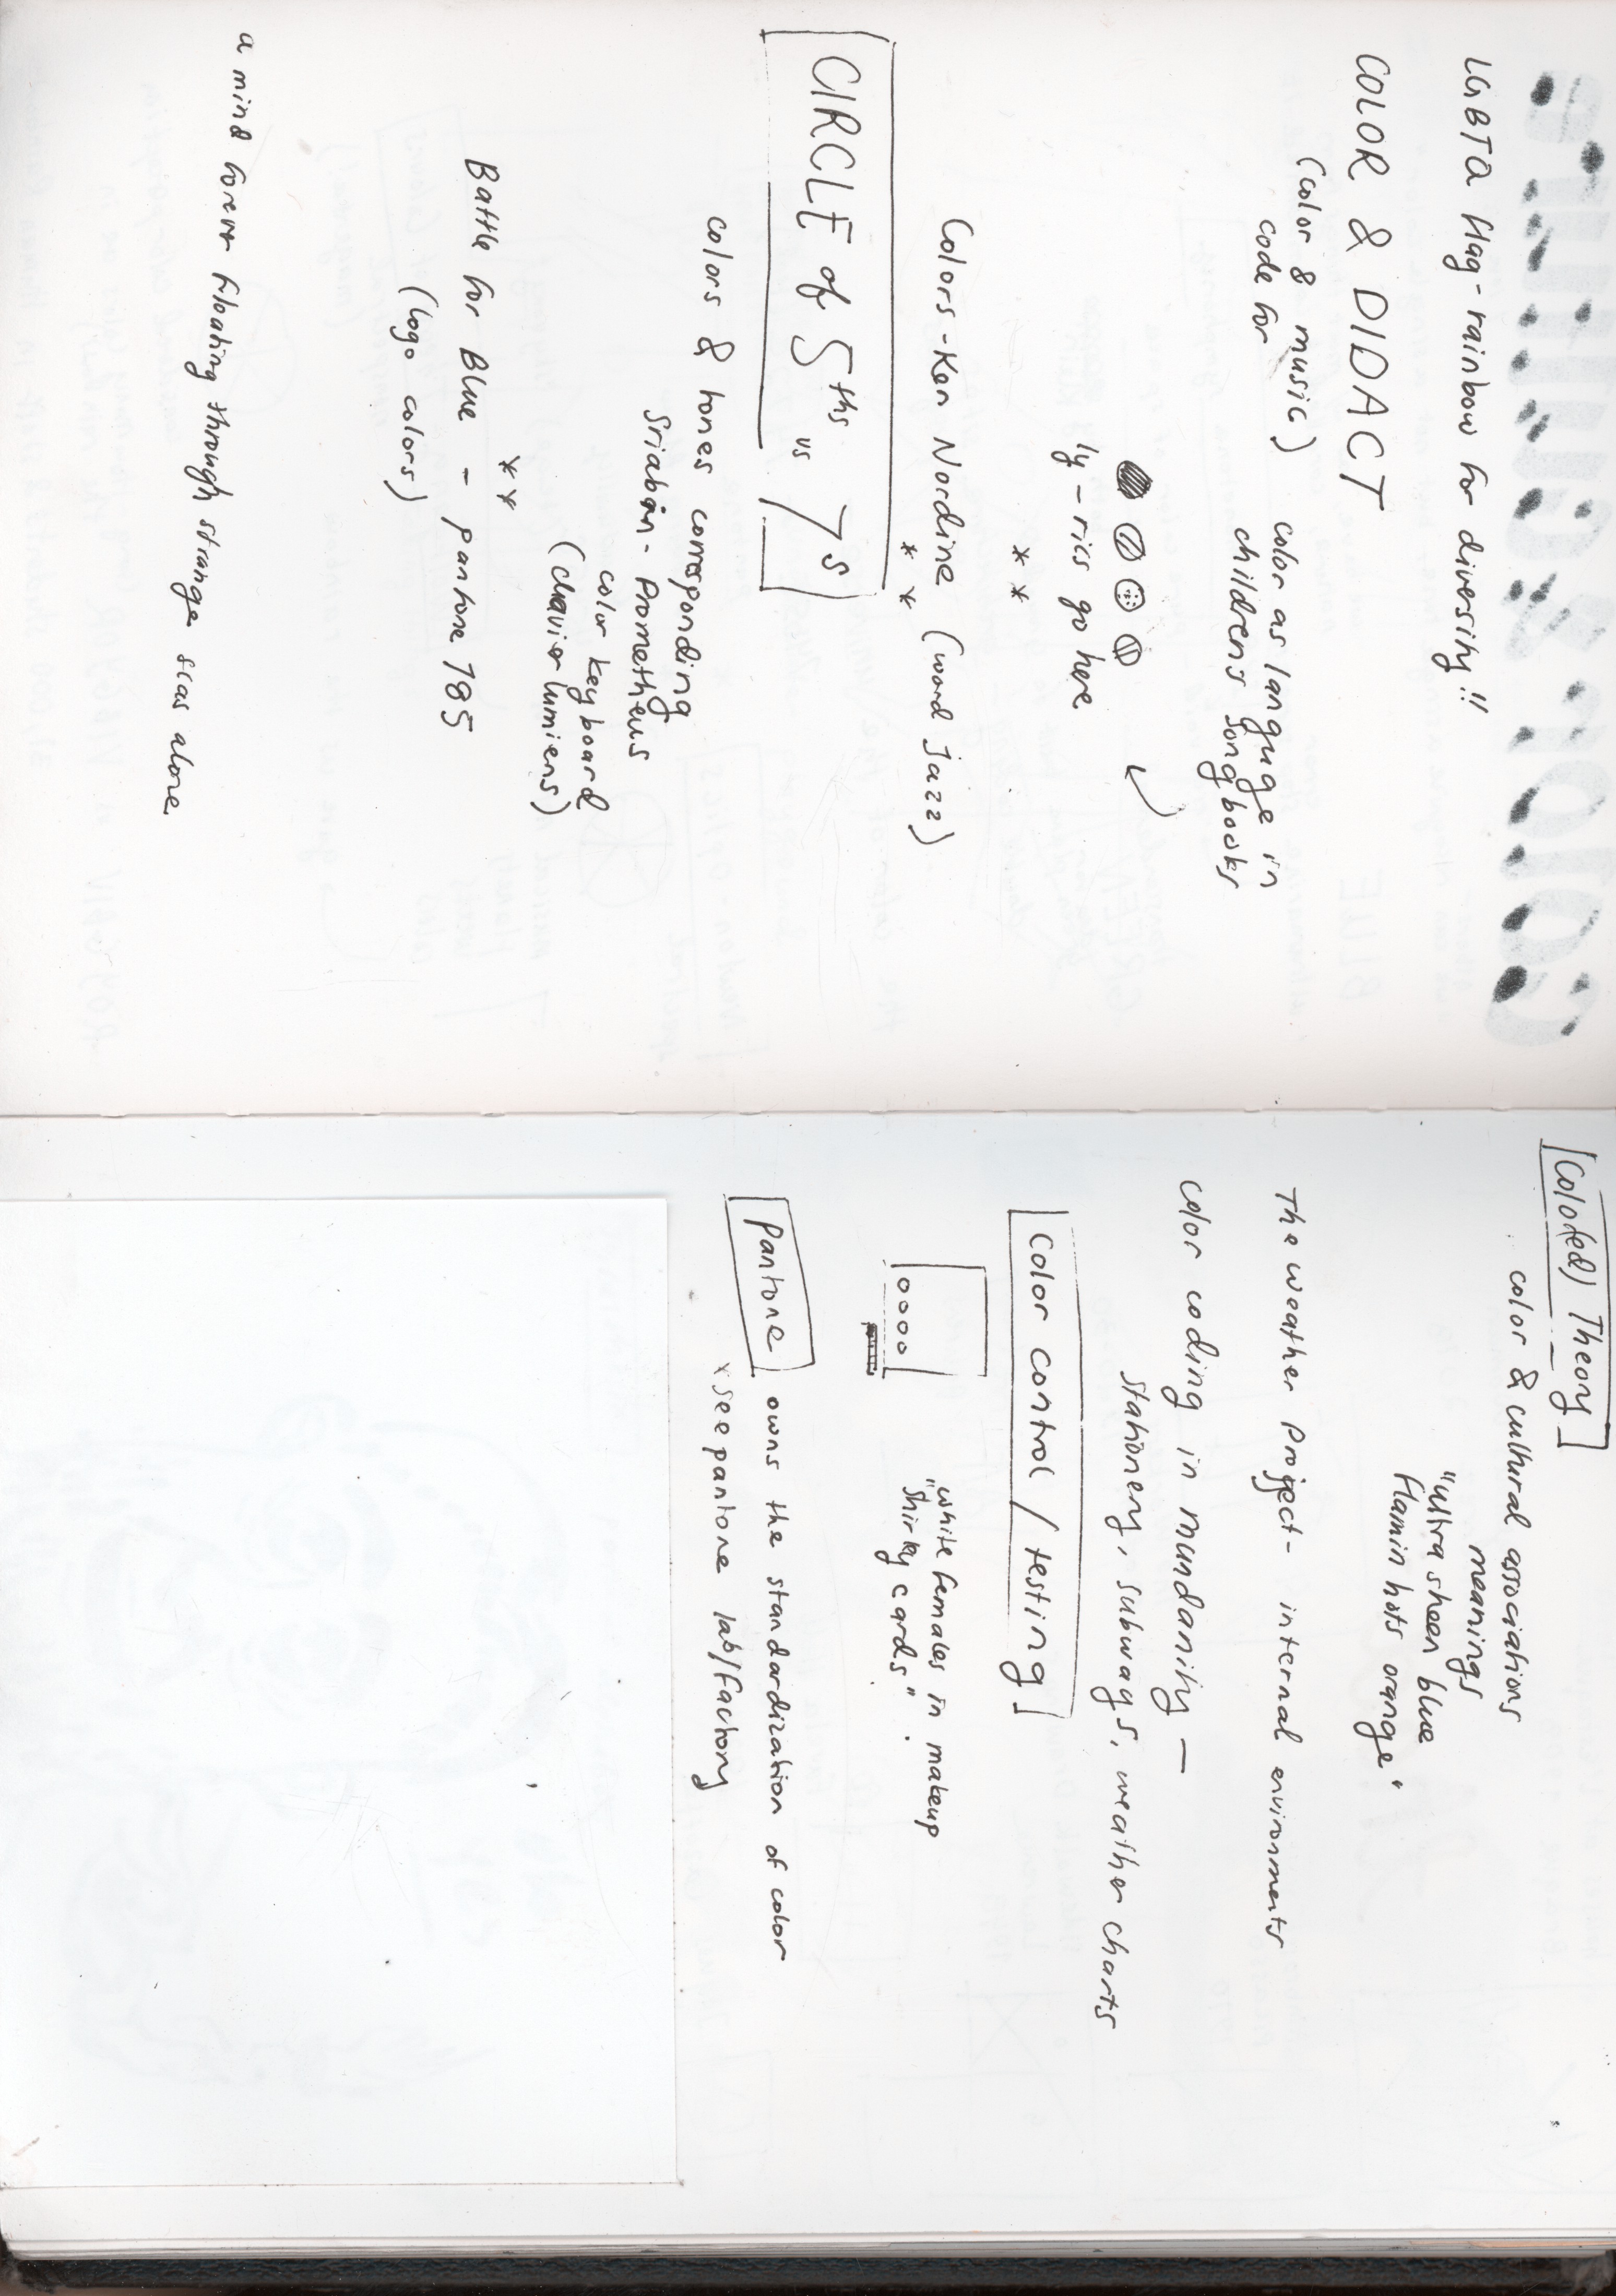 LGBTQ flag - rainbow for diversity!!
COLOR & DIDACT
(color & music)
code for
color as languge in
children's songbooks
ly - rics go here
* *
Colors - Ken Nordine (word Jazz)
* *
CIRCLE of 5ths vs 7s
colors & tones corresponding
Sriabin - Prometheus
color keyboard
(clavier lumiens)
* *
Battle for Blue - pantone 785
(logo colors)
a mind forever floating through strange seas alone
Colo(ed) Theory
color & cultural associations
meanings
"ultra sheen blue
flamin hots orange"
The weather project - internal environments
color coding in mundanity -
stationery, subways, weather charts
Color control / testing
"white females in makeup
"Shirley cards".
Pantone owns the standardization of color
* see pantone lab/factory